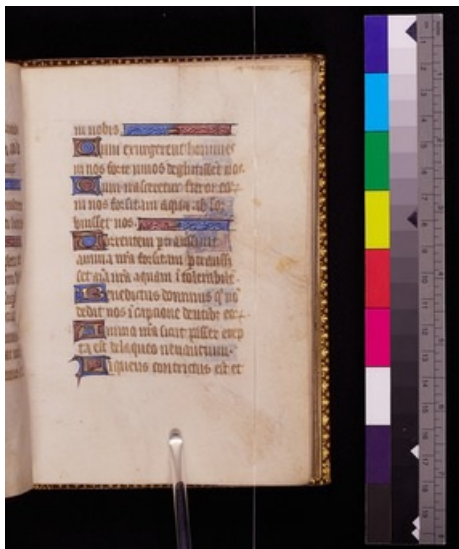 in nobis.
Cum exurgerent homines
in nos forte vivos deglutisset nos.
Cum irasceretur furor eor
in nos forsitam aqua ab sor
buisset nos.
Torrentem ptransivit
anima nra forsitam ptransis
set aia nra aquam i tolerabile.
Benedictus dominus q no
dedit nos i captione dentibz eor
Anima nra sicut passer erep
ta est de laqueo venantium.
Laqueus contritus est et